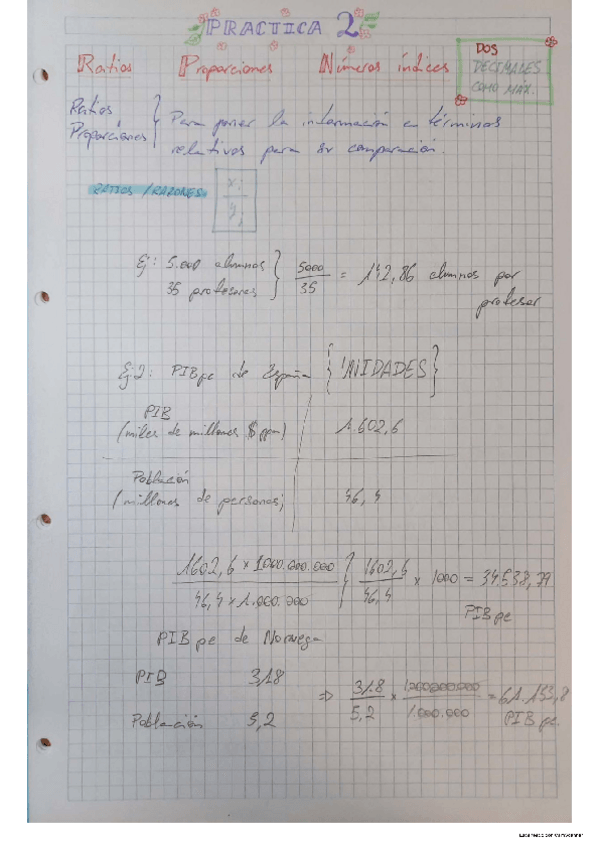 PRACTICA 2
Ratios Proporciones Números índices
DOS
DECIMALES
COMO MAX.
Ratios
Proporciones
Para poner la información en términos
relativos para su comparación.
RATIOS / RAZONES
Ej: 5.000 alumnos
35 profesores
5000
35
= 142,86 alumnos por
profesor
Ej2: PIBpc de España {UNIDADES}
PIB
(miles de millones $ ppm) 1.602,6
Población
(millones de personas) 46,4
1602,6 × 1000.000.000
46,4 × 1.000.000
1602,6
46,4
× 1000 = 34.538,79
PIBpc
PIBpc de Noruega
PIB 318
Población 5,2
⇒ 318
5,2
× 1000000000
1.000.000
= 61.153,8
PIBpc